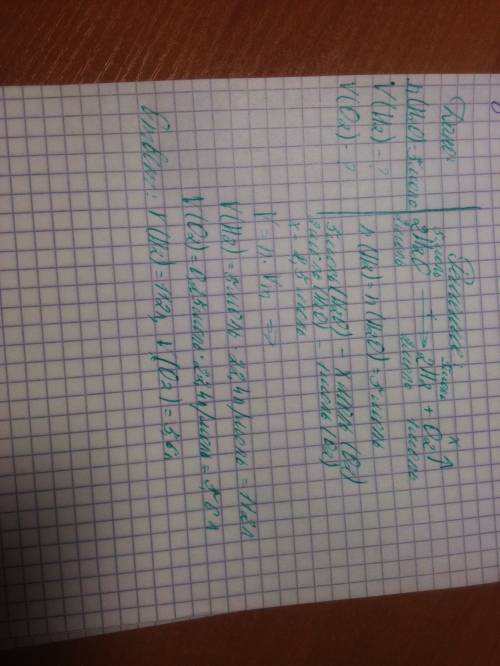 Дано:
n(H2O) = 5 моль
V(H2) - ?
V(O2) - ?
Решение:
5 моль 5 моль x
2H2O → 2H2 + O2↑
2 моль 2 моль 1 моль
n(H2) = n(H2O) = 5 моль
5 моль (H2O) - x моль (O2)
2 моль (H2O) - 1 моль (O2)
x = 2,5 моль
V = n · Vm =>
V(H2) = 5 моль · 22,4 л/моль = 112 л
V(O2) = 0,25 моль · 22,4 л/моль = 5,6 л
Ответ: V(H2) = 112 л, V(O2) = 56 л